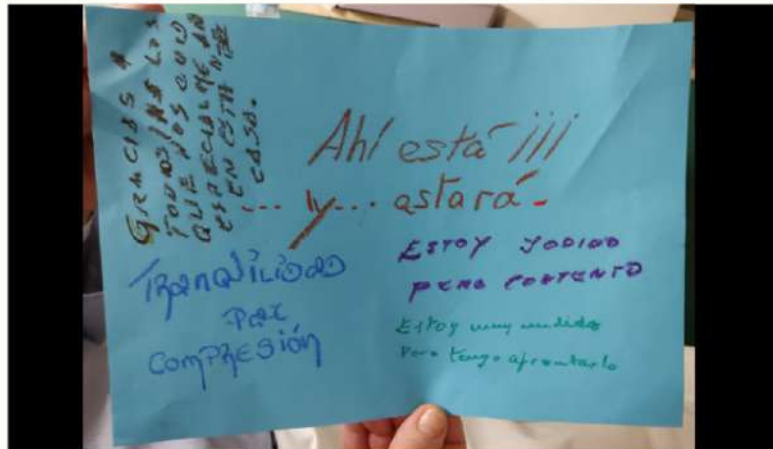 GRACIAS A
TODOS/AS LOS
QUE NOS CUID
ESPECIALMENTE
EN ESTA
CASA.
Ahí está ¡¡¡
... y ... astará.
TRANQUILIDAD
PAZ
COMPRESIÓN
ESTOY JODIDO
PERO CONTENTO
Estoy muy
Pero tengo afrontarlo